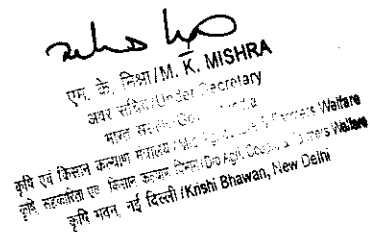 एम. के. मिश्रा/M. K. MISHRA
अवर सचिव/Under Secretary
भारत
कृषि एवं किसान कल्याण मंत्रालय / Farmers Welfare
कृषि, सहकारिता एवं किसान कल्याण विभाग/D/o Agri. Farmers Welfare
कृषि भवन, नई दिल्ली / Krishi Bhawan, New Delhi